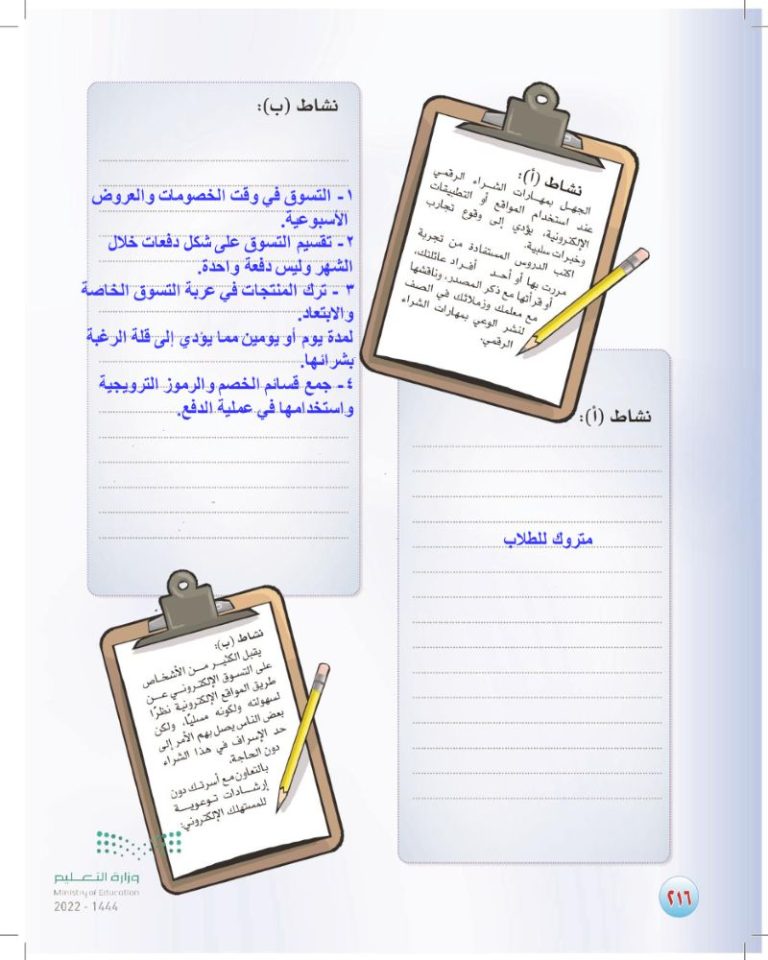 نشاط (أ):
الجهل بمهارات الشراء الرقمي
عند استخدام المواقع أو التطبيقات
الإلكترونية، يؤدي إلى وقوع تجارب
وخبرات سلبية.
اكتب الدروس المستفادة من تجربة
مررت بها أو أحد أفراد عائلتك،
أو قرأتها مع ذكر المصدر، وناقشها
مع معلمك وزملائك في الصف
لنشر الوعي بمهارات الشراء
الرقمي.
نشاط (أ):
متروك للطلاب
نشاط (ب):
١- التسوق في وقت الخصومات والعروض
الأسبوعية.
٢- تقسيم التسوق على شكل دفعات خلال
الشهر وليس دفعة واحدة.
٣ - ترك المنتجات في عربة التسوق الخاصة
والابتعاد.
لمدة يوم أو يومين مما يؤدي إلى قلة الرغبة
بشرائها.
٤- جمع قسائم الخصم والرموز الترويجية
واستخدامها في عملية الدفع.
نشاط (ب):
يقبل الكثير من الأشخاص
على التسوق الإلكتروني عن
طريق المواقع الإلكترونية نظرًا
لسهولته ولكونه مسليًا، ولكن
بعض الناس يصل بهم الأمر إلى
حد الإسراف في هذا الشراء
دون الحاجة.
بالتعاون مع أسرتك دون
إرشادات توعوية
للمستهلك الإلكتروني:
وزارة التعليم
Ministry of Education
2022 - 1444
٢١٦